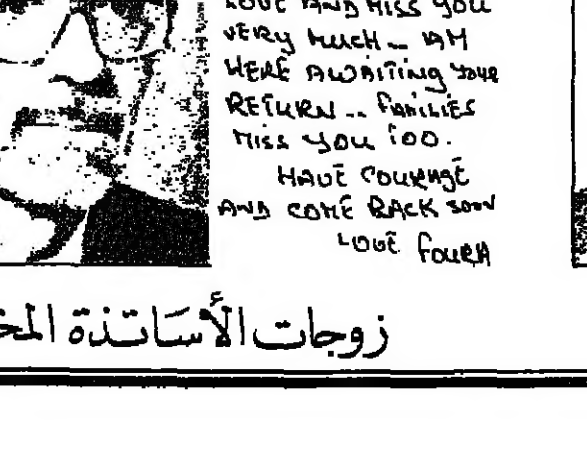 LOVE AND MISS YOU
VERY MUCH -- AM
HERE AWAITING YOUR
RETURN -- FAMILIES
MISS YOU TOO.
HAVE COURAGE
AND COME BACK SOON
LOVE
زوجات الأساتذة